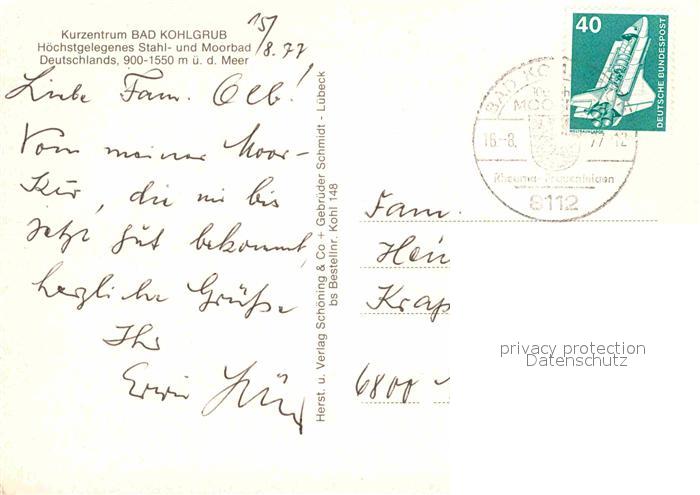 Kurzentrum BAD KOHLGRUB
Höchstgelegenes Stahl- und Moorbad
Deutschlands, 900-1550 m ü. d. Meer
15/
8.77
Liebe Fam. Olb!
Von meiner Moor-
Kur, die mir bis
jetzt gut bekommt,
herzliche Grüße
Ihr
Erwin
Herst. u. Verlag Schöning & Co + Gebrüder Schmidt - Lübeck
bs Bestellnr. Kohl 148
40
DEUTSCHE BUNDESPOST
WELTRAUMLABOR
BAD KO
MOO
16.-8.
77-12
Rheuma - Frauenleiden
8112
Fam.
Hein
Krap
6800
privacy protection
Datenschutz